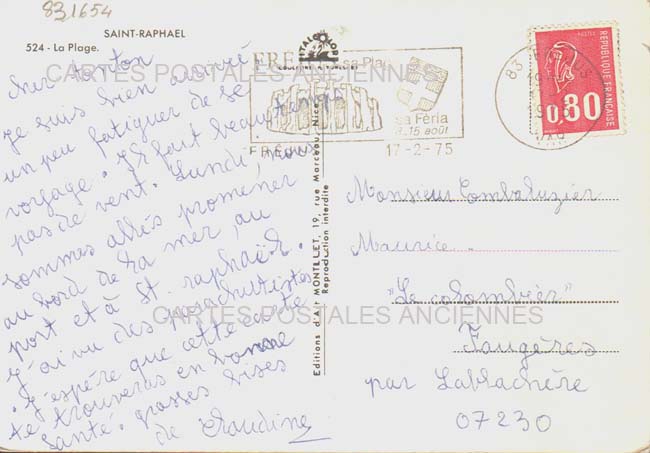 831654
SAINT-RAPHAEL
524 - La Plage.
ITALCOLOR
COULEURS NATURELLES
FRÉJUS
sa Féria
8.15 août
FRÉJUS
17-2-75
83
1975
VAR
POSTES
RÉPUBLIQUE FRANÇAISE
0,80
CARTES POSTALES ANCIENNES
Cher tonton
je suis bien arrivée
un peu fatiguer de se
voyage. Il fait beau temps
pas de vent. Lundi, nous
sommes allés promener
au bord de la mer, au
port et à St. raphaël.
J'ai vu des parachutistes
J'espère que cette carte
te trouveras en bonne
santé. grosses bises
de Claudine
Editions d'Art MONTILLET, 19, rue Marceau, Nice
Reproduction interdite
Monsieur Combaluzier
Maurice.
"Le colombier"
CARTES POSTALES ANCIENNES
Faugères
par Lablachère
07230